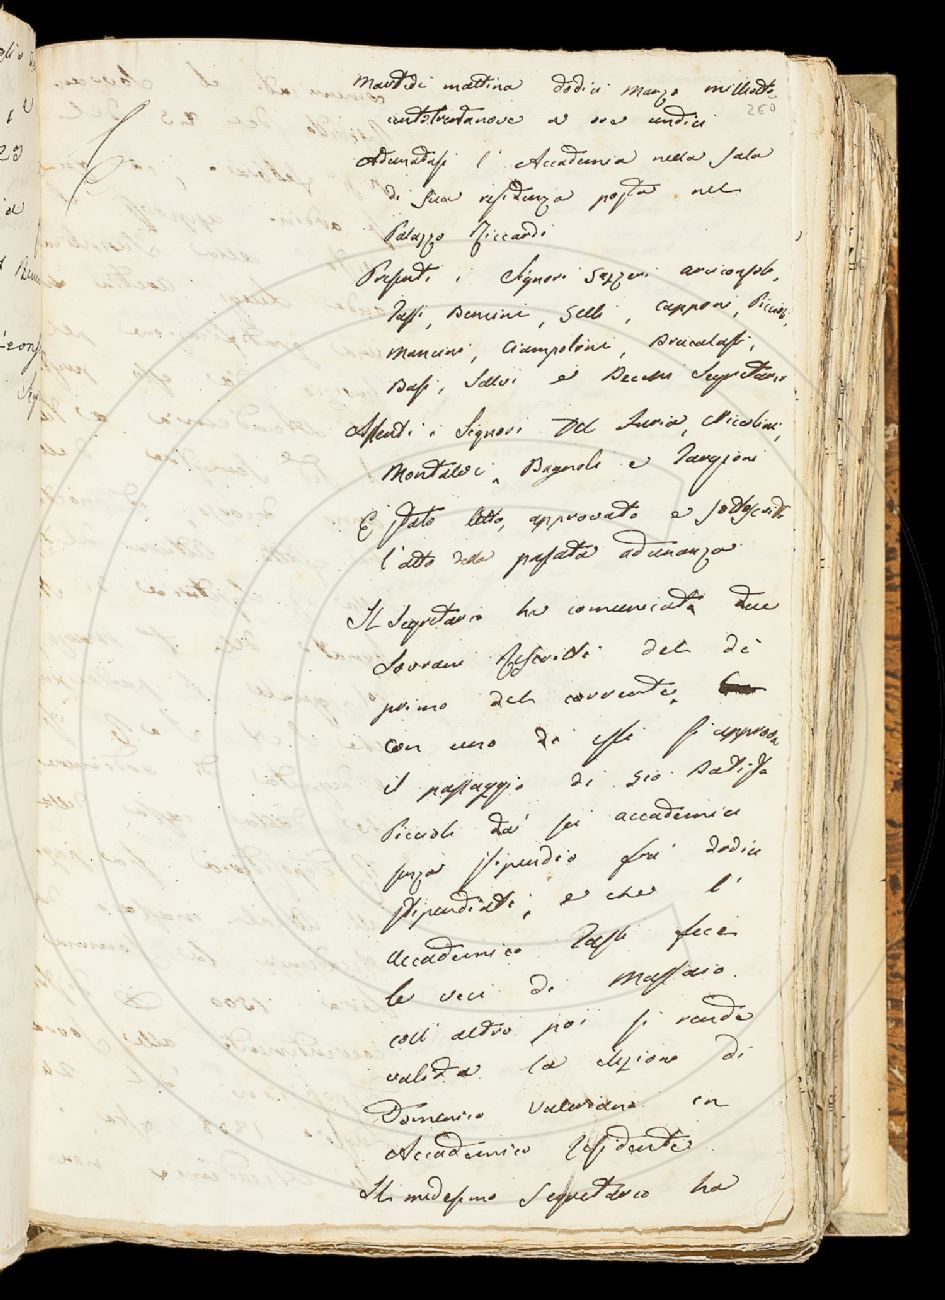 Martedi mattina dodici Marzo milleotto
260
centotrentanove a ore undici
Adunatasi l'Accademia nella sala
di sua residenza posta nel
Palazzo Riccardi
Presenti i Signori Gazzeri arciconsolo,
Tassi, Bencini, Gelli, Capponi, Piccioli,
Mancini, Ciampolini, Brucalassi,
Basi, Salvi e Becchi Segretario
Assenti i Signori Del Furia, Niccolini,
Montalvi, Bagnoli e Targioni
È stato letto, approvato e sottoscritto
l'atto della passata adunanza
Il Segretario ha comunicati due
Sovrani Rescritti del dì
primo del corrente,
con uno di essi si approva
il passaggio di Gio Batista
Piccioli dai sei accademici
senza stipendio fra' dodici
stipendiati, e che l'
Accademico Tassi faccia
le veci di Massaio.
coll'altro poi si rende
valida la elezione di
Domenico Valeriani in
Accademico Residente.
Il medesimo Segretario ha